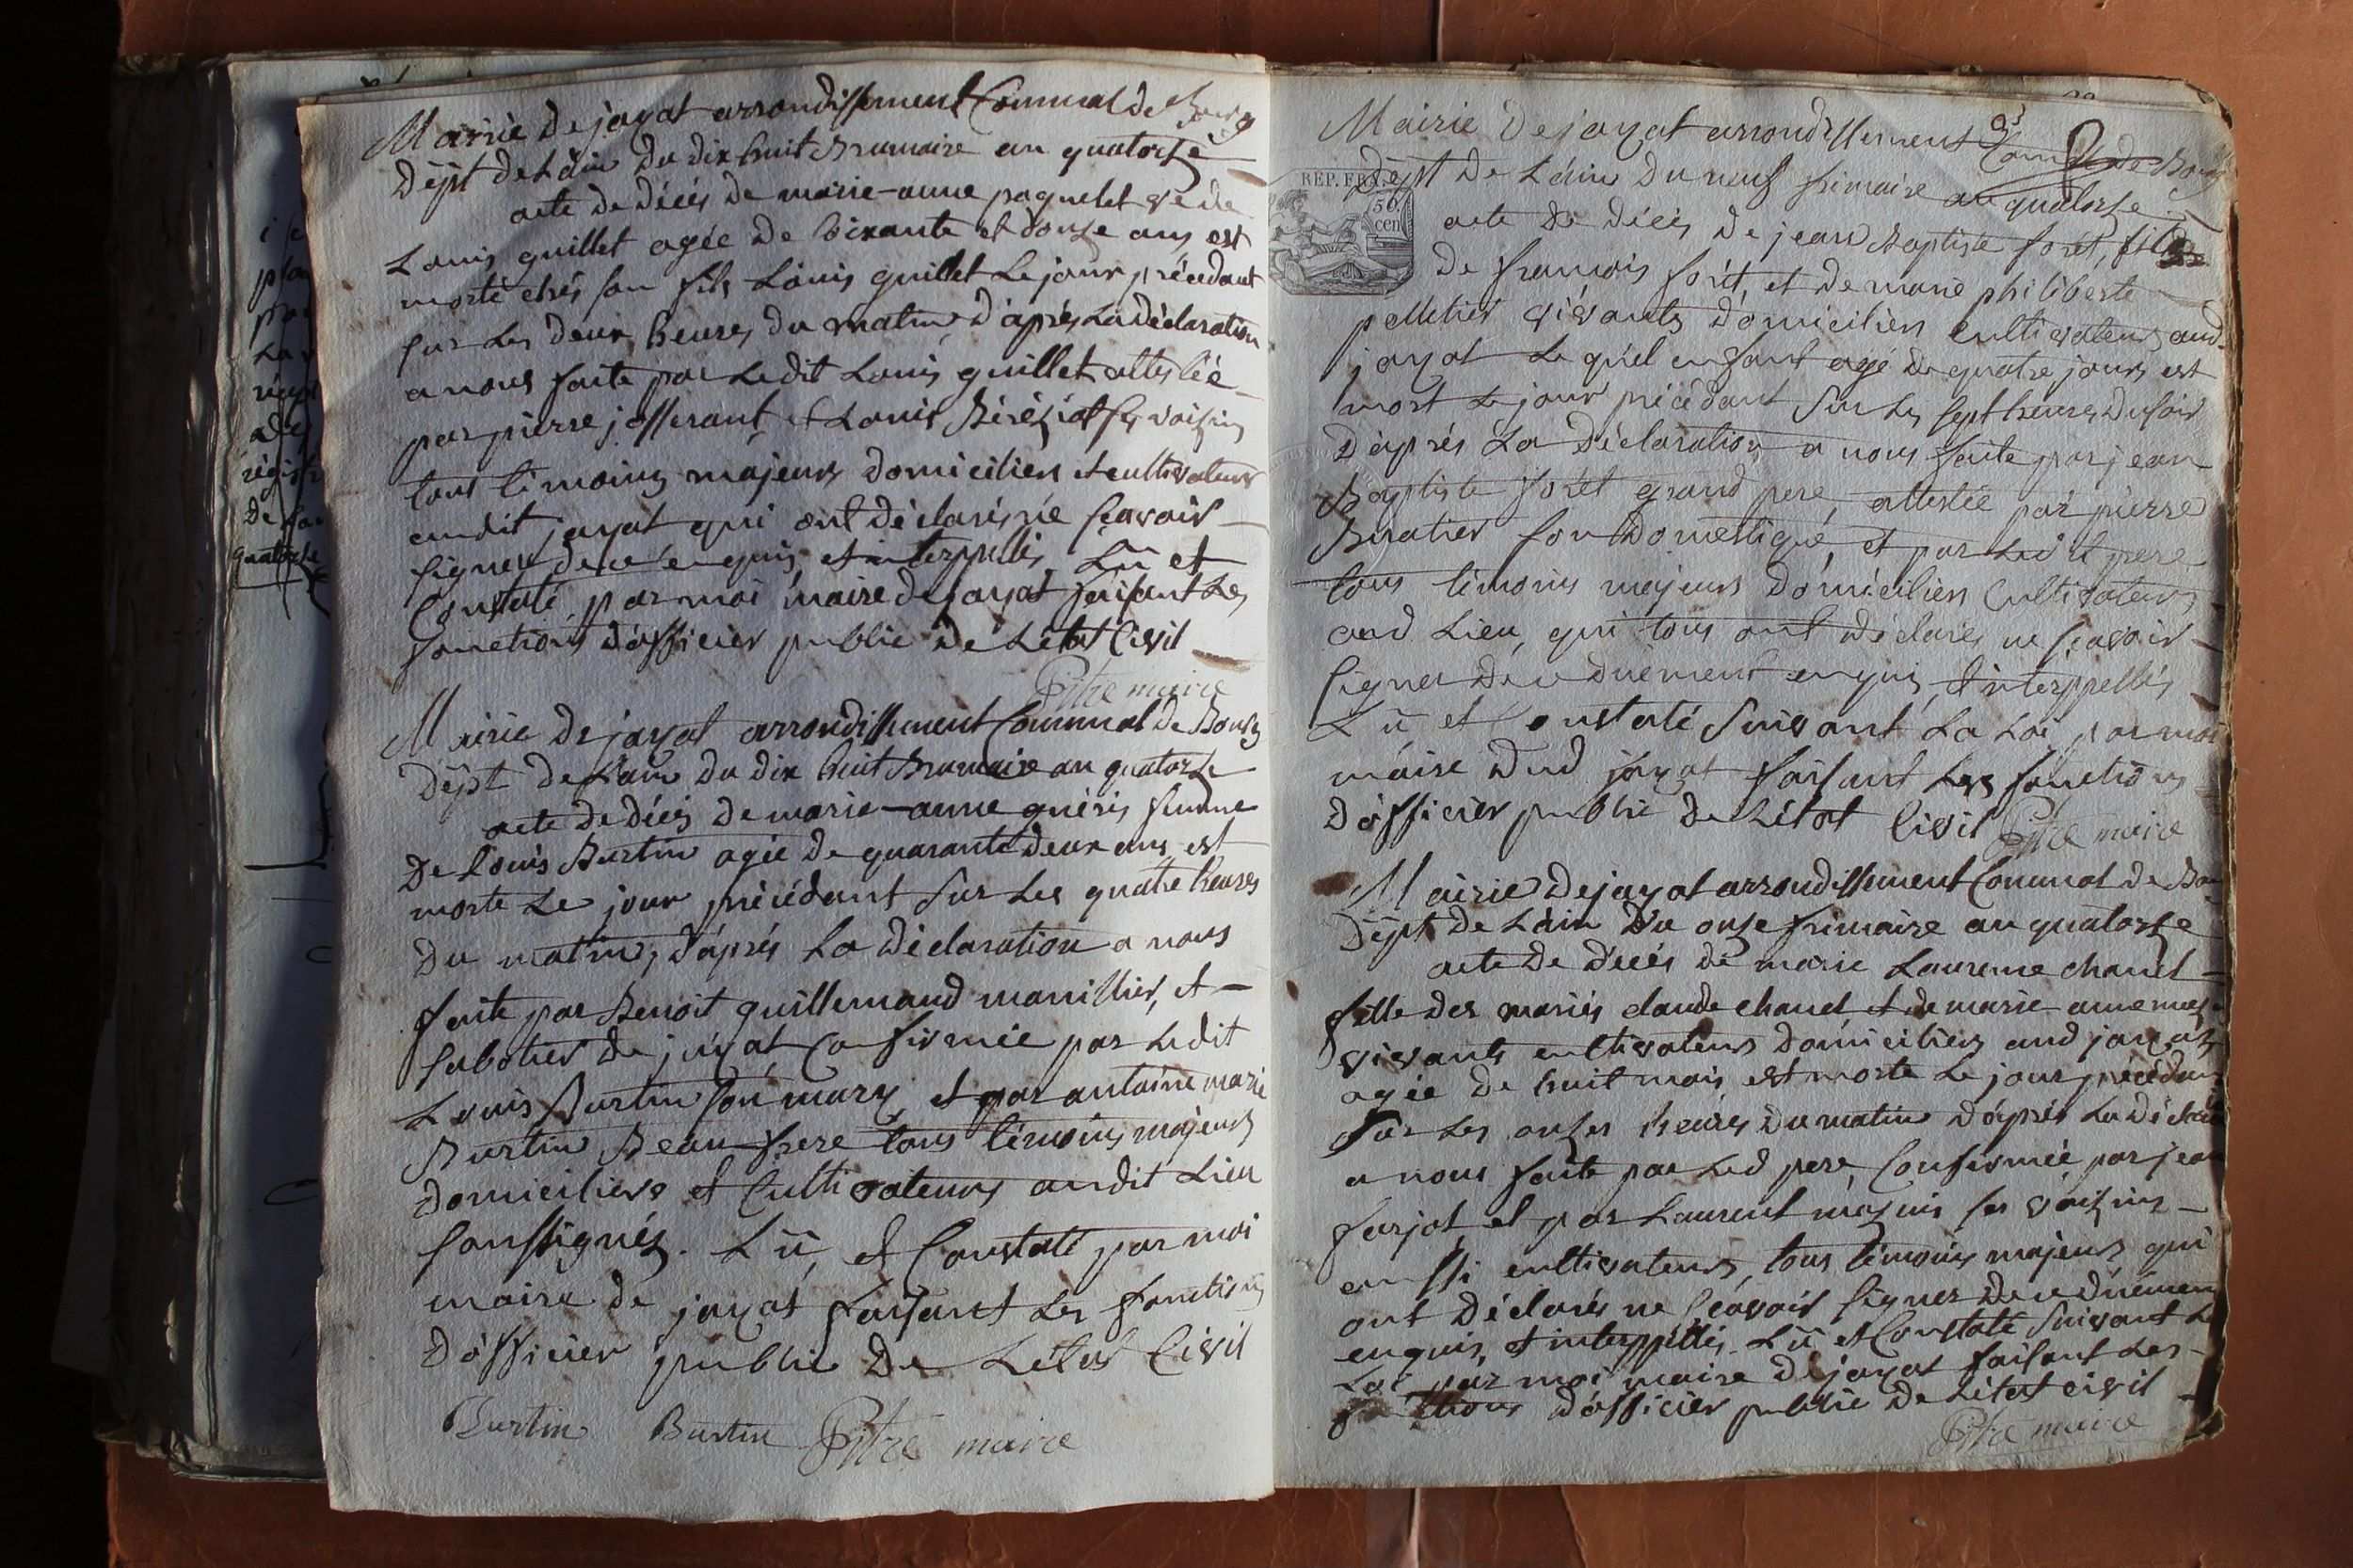 Mairie de jayat arrondissement Communal de Bourg
Dépt de L'ain du dix huit Brumaire an quatorze
acte de décés de marie-anne paquelet ve de
Louis guillet agée de soixante et douze ans est
morte chés son fils Louis guillet Le jour précedant
sur Les deux heures du matin d'aprés La déclaration
a nous faite par Ledit Louis guillet attestée
par pierre josserant et Louis Béréziat ses voisins
tous témoins majeurs domiciliers et cultivateurs
audit jayat qui ont déclarés ne scavoir
signer de ce enquis et interppellés Lû et
Constaté par moi maire de jayat faisant Les
fonctions d'officier public de L'état Civil
Pitre maire
Mairie de jayat arrondissement Communal de Bourg
Dépt de L'ain du dix huit Brumaire an quatorze
acte de décés de marie-anne guéris femme
de Louis Burtin agée de quarante deux ans est
morte Le jour précédant sur Les quatre heures
du matin, d'aprés La déclaration a nous
faite par Benoit guillemaud manillier, et
sabotier de jayat Confirmée par Ledit
Louis Burtin son mary et par antoine marie
Burtin Beau-frere tous témoins majeurs
domiciliers et Cultivateurs audit Lieu
soussignés. Lû, et Constaté par moi
maire de jayat faisant Les fonctions
d'officier public de L'état Civil
Burtin Burtin Pitre maire
REP. FRA.
50
cen
Mairie de jayat arrondissement de Bourg
Dépt de L'ain du neuf frimaire an quatorze
acte de décés de jean Baptiste forêt, fils
de françois forêt, et de marie philiberte
pelletier vivants domiciliers cultivateurs aud
jayat Lequel enfant agé de quatre jours est
mort Le jour précédant sur Les sept heures du soir
d'aprés La déclaration a nous faite par jean
Baptiste forêt grand pere, attestée par pierre
Buatier son domestique, et par Led pere
tous témoins majeurs domiciliers Cultivateurs
aud Lieu, qui tous ont déclarés ne scavoir
signer de ce duement enquis, et interppellés
Lû et Constaté suivant La Loi par moi
maire dud jayat faisant Les fonctions
d'officier public de L'état Civil Pitre maire
Mairie de jayat arrondissement Communal de Bou
Dépt de L'ain du onze frimaire an quatorze
acte de décés de marie Laurence chanel
fille des mariés claude chanel et de marie anne
vivants cultivateurs domiciliers aud jayat
agée de huit mois est morte Le jour précédant
sur Les onzes heures du matin d'aprés La déclara
a nous faite par Led pere, Confirmée par jean
farjot et par Laurent mazuis ses voisins
aussi cultivateurs, tous témoins majeurs qui
ont déclarés ne scavoir signer de ce duement
enquis, et interppellés. Lû et Constaté suivant La
Loi par moi maire de jayat faisant Les
fonctions d'officier public de L'état civil
Pitre maire